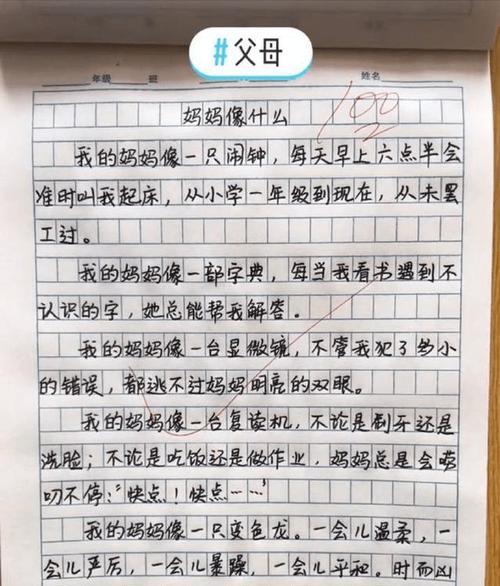 #父母
年级 班 姓名
妈妈像什么
100
我的妈妈像一只闹钟，每天早上六点半会
准时叫我起床，从小学一年级到现在，从未罢
工过。
我的妈妈像一部字典，每当我看书遇到不
认识的字，她总能帮我解答。
我的妈妈像一台显微镜，不管我犯了多小
的错误，都逃不过妈妈明亮的双眼。
我的妈妈像一台复读机，不论是刷牙还是
洗脸；不论是吃饭还是做作业，妈妈总是会唠
叨不停：“快点！快点……”
我的妈妈像一只变色龙。一会儿温柔，一
会儿严厉，一会儿暴躁，一会儿平和。时而凶